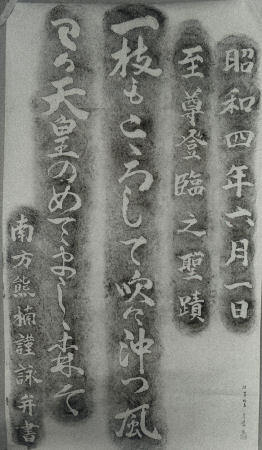 昭和四年六月一日
至尊登臨之聖蹟
一枝もこゝろして吹け沖つ風
わか天皇のめてましゝ森そ
南方熊楠謹詠并書